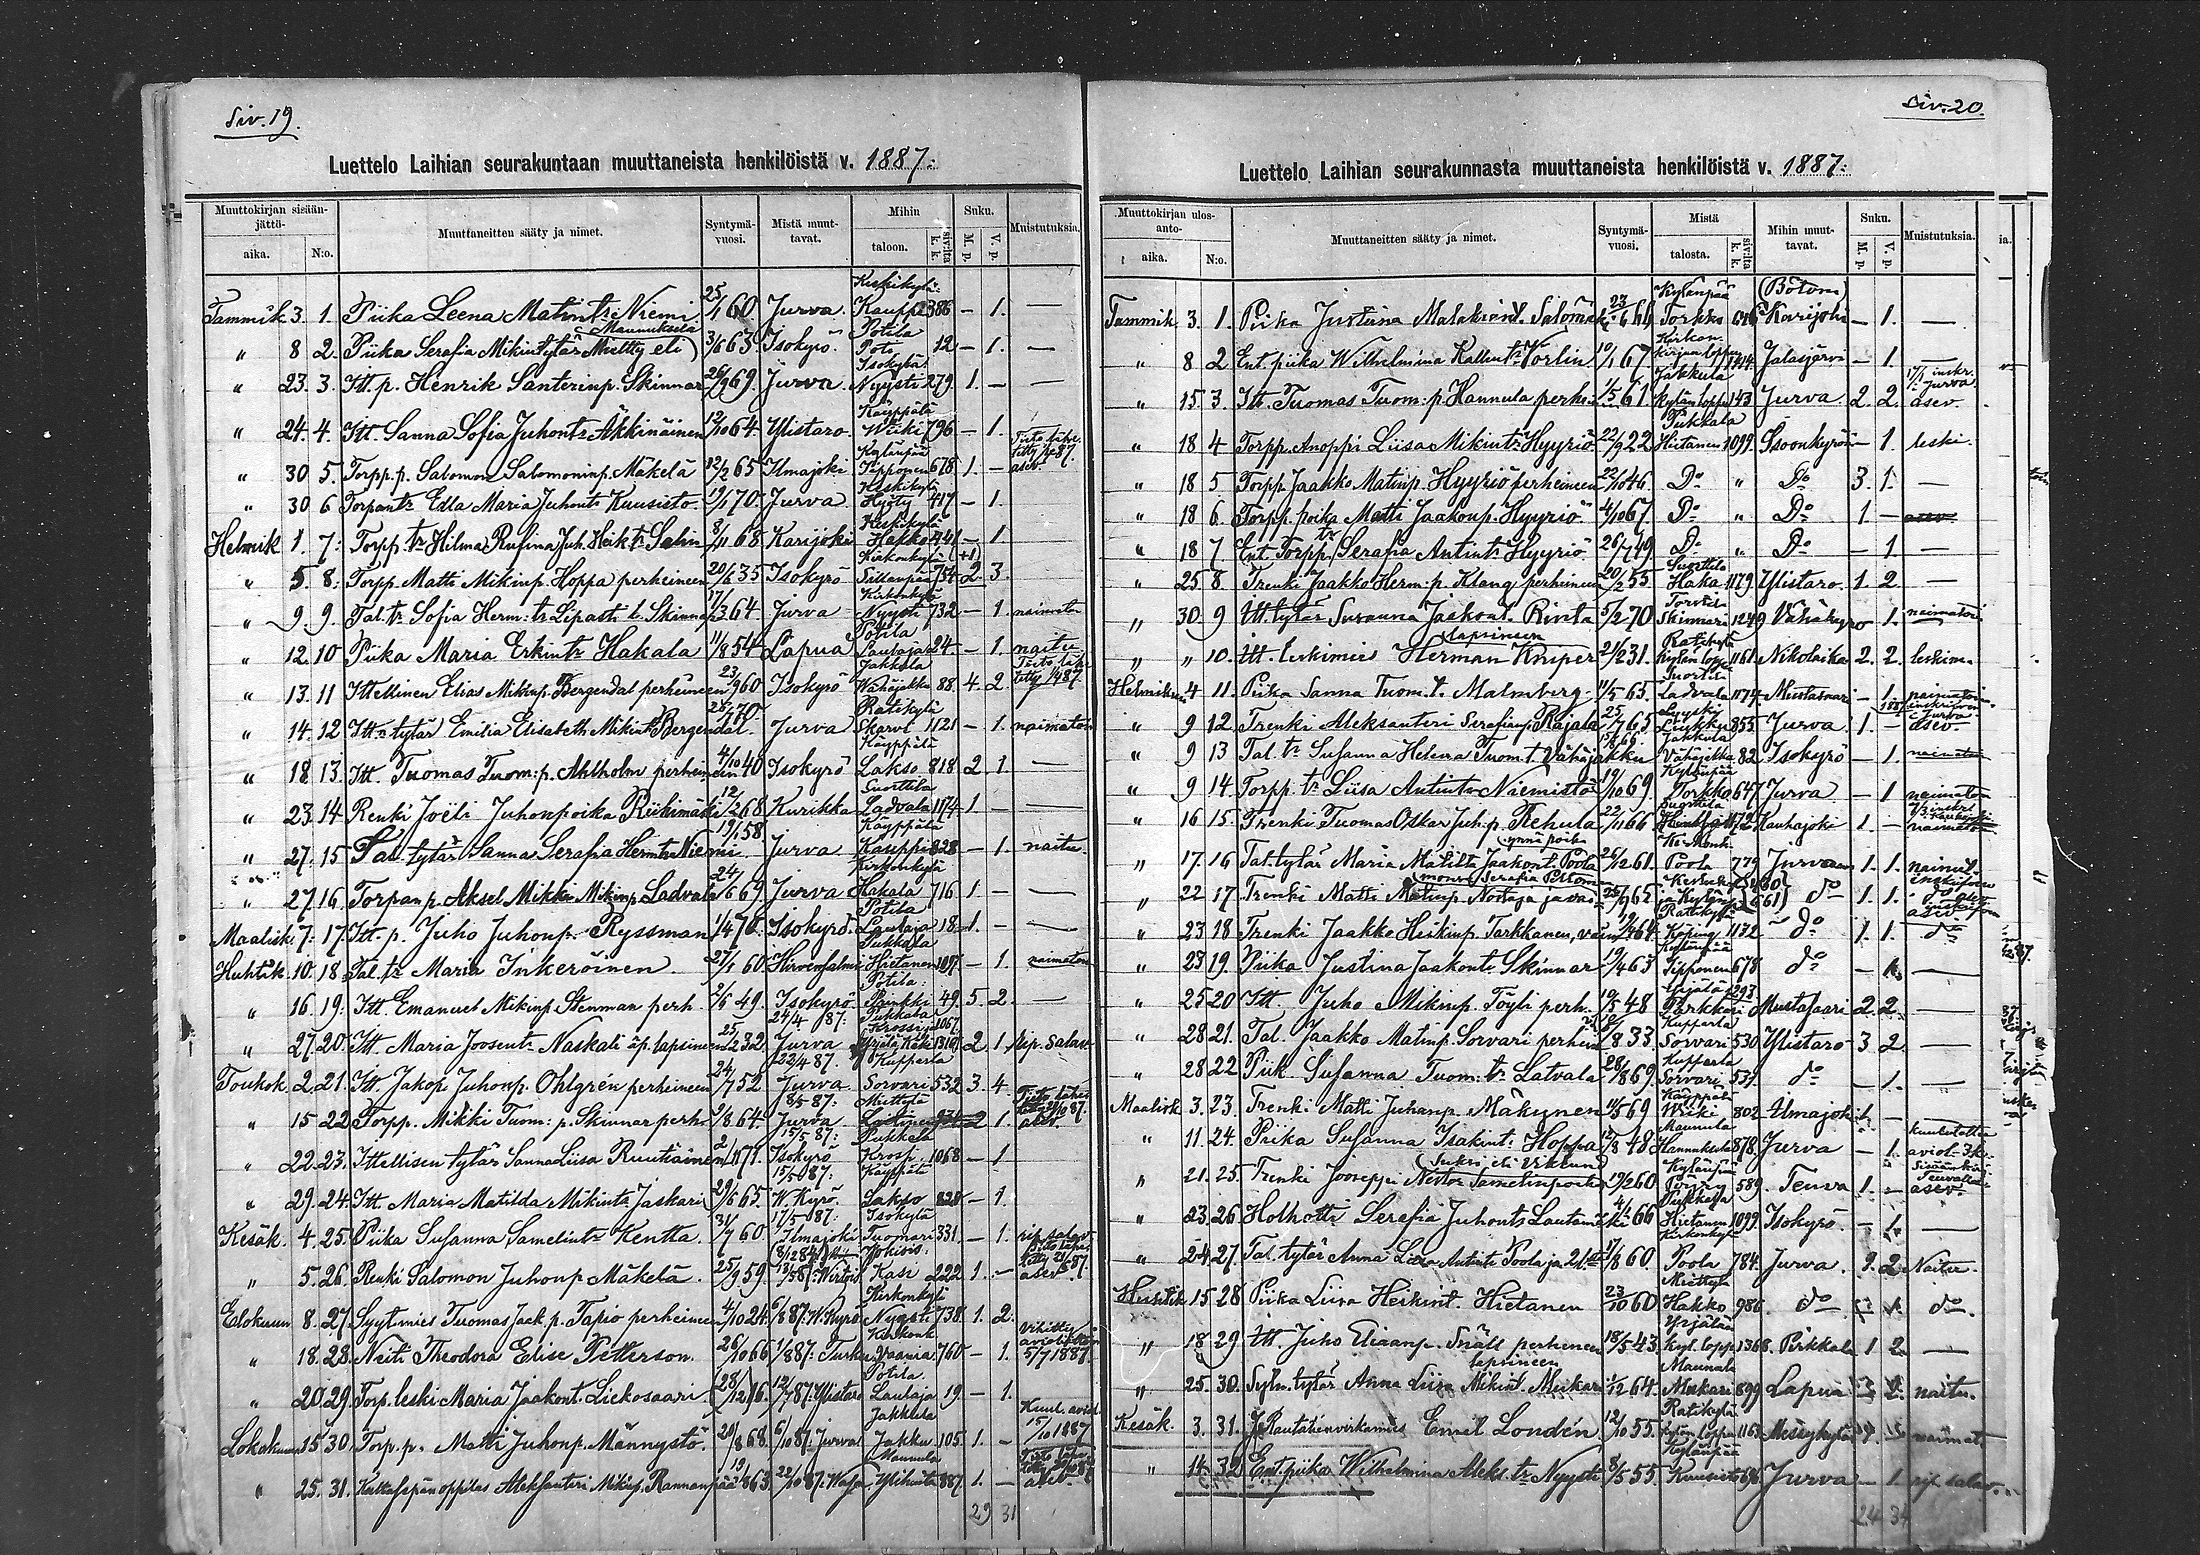 Siv. 19.
Luettelo Laihian seurakuntaan muuttaneista henkilöistä v. 1887:
Muuttokirjan sisäänjättö- aika. N:o. Muuttaneitten sääty ja nimet. Syntymävuosi. Mistä muuttavat. Mihin taloon. k. k. sivulta Suku. M. p. V. p. Muistutuksia.
Tammik. 3. 1. Piika Leena Matintr Niemi 25/1 60 Jurva Keskikylä Kauppi 386 — 1. —
" 8 2. Piika Serafia Mikintytär Miettty eli Maunuksela 3/6 63 Isokyrö Potila Poti 12 — 1. —
" 23. 3. Itt. p. Henrik Santerinp. Skinnar 26/9 69 Jurva Isokylä Nyysti 279 1. — —
" 24. 4. Itt. Sanna Sofia Juhontr Äkkinäinen 12/10 64 Ylistaro Käyppälä Wiiki 796 — 1.
" 30 5. Torpp. p. Salomon Salomoninp. Mäkelä 12/2 65 Ilmajoki Kylänpää Sipponen 678 1. — asev.
" 30 6 Torpantr Edla Maria Juhontr Kuusisto 19/1 70 Jurva Keskikylä Höyty 417 — 1.
Helmik 1. 7: Torpp. tr Hilma Rufina Juh. Heik. tr Salin 8/11 68 Karijoki Keskikylä Hakko 441 — 1 —
" 5 8: Torpp. Matti Mikinp. Hoppa perheineen 20/6 35 Isokyrö Kirkonkylä Sillanpää 754 2 3. (+1)
" 9. 9. Tal. tr Sofia Herm: tr Lipasti l. Skinnar 17/3 64 Jurva Kirkonkylä Nyysti 732 — 1. naimaton
" 12. 10 Piika Maria Erkintr Hakala 11/8 54 Lapua Potila Lautaja 24 — 1. naitu
" 13. 11 Itellinen Elias Mikinp. Bergendal perheineen 23/9 60 Isokyrö Jakkula Wähäjakku 88. 4. 2.
" 14. 12 Itt. tytär Emilia Elisabeth Mikint. Bergendal 70 Jurva Ratikylä Skarul 1121 — 1. naimaton
" 18 13. Itt. Tuomas Tuom: p. Ahlholm perheineen 4/10 40 Isokyrö Käyppälä Lakso 818 2 1 —
" 23. 14 Renki Joëli Juhonpoika Riihimäki 12/2 68 Kurikka Suorttila Ladvala 1174 1 —
" 27. 15 Tal. tytär Sanna Serafia Hermtr Niemi 19/1 58 Jurva Käyppälä Kauppi 828 — 1. naitu.
" 27. 16. Torpan p. Aksel Mikki Mikinp Ladvala 24/6 69 Jurva Kirkonkylä Hakala 716 1 — —
Maalisk. 7. 17 Itt. p. Juho Juhonp. Ryssman 1/4 78. Isokyrö. Potila Lautaja 18 1. — —
Huhtik. 10. 18. Tal. tr Maria Inkeröinen 27/1 60 Hirvensalmi Pukkala Hietanen 1097 — 1. naimaton
" 16. 19: Itt. Emanuel Mikinp Stenman perh. 2/6 49. Isokyrö 24/4 87: Potila Penkki 49. 5. 2. —
" 27. 20 Itt. Maria Joosentr Naskali äp. lapsineen 25/2 32 Jurva 22/4 87. Pukkala Krossi 1067 2. 1. rip. salav.
Toukok. 2. 21. Itt. Jakop Juhonp. Ohlgrén perheineen 24/7 52 Jurva 8/5 87: Kupparla Sorvari 532 3. 4
" 15 22 Torpp. Mikki Tuom: p. Skinnar perh. 2/8 64. Jurva 15/5 87: Miettylä 2 1. asev.
" 22. 23. Itellisen tytär Sanna Liisa Ruutiainen 2/1 71. Isokyrö 15/5 87: Pukkala Krosi 1068 — 1
" 29. 24. Itt. Maria Matilda Mikintr Jaskari 29/6 65. W. Kyrö. 17/5 87: Käyppälä Lakso 828 — 1.
Kesäk. 4. 25. Piika Susanna Samelintr Kentta. 31/7 60 Ilmajoki Isokylä Tuomari 331 — 1. rip. salav.
" 5. 26. Renki Salomon Juhonp Mäkelä. 25/9 59. Jokisis: Kasi 222 1. — asev.
Elokuun 8. 27. Syytmies Tuomas Jaek. p. Tapio perheineen 4/10 24. 6/8 87. W. Kyrö Kirkonkylä Nyysti 738. 1. 2:
" 18. 28. Neiti Theodora Elise Petterson. 26/10 66 1/8 87: Turku Kirkonk 760 — 1. Vihitty avioliittoon 5/7 1887.
" 20. 29. Torp. leski Maria Jaakont. Liekosaari 28/12 16. 12/7 87. Ylistaro Potila. Lautaja 19 — 1.
Lokakuun 15 30. Torp. p. Matti Juhonp. Männystö. 20/8 68. 6/10 87. Jurva Jakkula Jakku 105. 1. — Kuul. aviol. 15/10 1887
" 25. 31. Kultasepän oppilas Aleksanteri Mikinp. Rannanpää 19/8 63. 22/10 87. Wasa Maunula Ylihunta 887. 1. — asev.
29 31
Siv. 20.
Luettelo Laihian seurakunnasta muuttaneista henkilöistä v. 1887:
Muuttokirjan ulosanto- aika. N:o. Muuttaneitten sääty ja nimet. Syntymävuosi. Mistä talosta. k. k. sivulta Mihin muuttavat. Suku. M. p. V. p. Muistutuksia.
Tammik 3. 1. Piika Justina Malakiant. Salomäki 23/6 66 Kylänpää Torkko 646 (Bötom) Karijoki — 1. —
" 8 2 Ent. piika Wilhelmina Kallentr Forlin 10/1 67 Kirkon- kirjan loppu 1414. Jalasjärvi — 1. —
" 15 3. Itt. Tuomas Tuom: p. Hannula perh. 1/5 61 Jakkula kylän loppu 143 Jurva 2. 2. 17/1 inskr. i Jurva asev.
" 18 4 Torpp. Anoppi Liisa Mikintr Hyyriö 22/9 22 Pukkala Hietanen 1099. Isoonkyröön — 1. leski.
" 18 5 Torpp. Jaakko Matinp. Hyyriö perheineen 22/10 46 Do " Do 3. 1. —
" 18 6. Torpp. poika Matti Jaakonp. Hyyriö 4/10 67 Do " Do 1. — asev
" 18 7 Ent. Torpp. tr Serafia Antintr Hyyriö 26/7 49 Do " Do — 1 —
" 25 8. Trenki Jaakko Herm: p. Klang perheineen 20/2 55 Suorttila Haka 1179 Ylistaro. 1. 2 —
" 30 9 Itt. tytär Susanna Jaakont. Rinta 5/2 70 Torstila Skinnari 1249 Vähäkyrö — 1. naimaton
" " 10. Itt. leskimies Herman Kniper lapsineen 2/2 31. Ratikylä kylän loppu 1161. Nikolaika 2. 2. leskim.
Helmikuu 4 11. Piika Sanna Tuom. t. Malmberg. 11/5 65. Suorttila Ladvala 1174. Mustasaari — 1. naimaton
" 9 12. Trenki Aleksanteri Serafianp. Rajala 25/7 65 Lyyski Luukku 855 Jurva 1. — asev.
" 9 13 Tal. tr Susanna Helena Tuom. t. Vähäjakku 15/8 66 Jakkula Vähäjakku 82. Isokyrö — 1. naimaton
" 9 14. Torpp. tr Liisa Antintr Niemistö 19/10 69 Kylänpää Torkko 647 Jurva — 1 naimaton
" 16 15. Trenki Tuomas Oskar Juh. p. Rehula 22/11 66 Suorttila 1172. Kauhajoki 1. — naimaton
" 17. 16 Tal. tytär Maria Matilta Jaakont. Poola ynnä poika 26/12 61. Poola 779 Jurvaan 1. 1.
" 22 17. Trenki Matti Matinp. Nortaja ja vaimo Serafia 26/9 65 do 1. 1. asev.
" 23 18 Trenki Jaakko Heikinp. Tarkkanen, vaim. 19/4 64 Ratikylä Köping 1132 do 1. 1. do
" 23 19. Piika Justina Jaakontr Skinnar 19/4 63 Kylänpää Sipponen 678 do — 1. —
" 25 20 Itt. Juho Mikinp. Töyli perh. 19/5 48 Yrjälä 293 Parkkari Mustasaari 2. 2. —
" 28 21. Tal. Jaakko Matinp. Sorvari perhein. 6/8 33. Kupparla Sorvari 530 Ylistaro 3 2 —
" 28 22 Piik. Susanna Tuom: tr Latvala 28/8 69. Kupparla Sorvari 531. do — 1. —
Maalisk 3. 23. Trenki Matti Juhanp. Mäkynen 11/5 69 Käyppälä Wiiki 802 Ilmajoki 1. — —
" 11. 24. Piika Susanna Isakint. Hoppa 12/8 48 Maunula Hannuksela 878. Jurva — 1.
" 21. 25. Trenki Jooseppi Nestor Samelinpoika 19/2 60 Kylänpää 589. Teuva 1. — asev.
" 23. 26 Holhotti Serafia Juhontr Lautamäki 4/1 66 Pukkala Hietanen 1099. Isokyrö. — 1. —
" 24. 27. Tal. tytär Anna Liisa Antintr Poola ja 2 l. 17/8 60. Kirkonkylä Poola 784. Jurva. 2. Naitu.
Huhtik 15 28 Piika Liisa Heikint. Hietanen 23/10 60 Miettylä Hakko 986. do — 1. do.
" 18 29 Itt. Juho Eliaanp. Snäll perheneen lapsineen 18/5 43. Yrjälän kyl. lopp. 1368. Pirkkala 1 2. —
" 25. 30. Sytm. tytär Anna Liisa Mikint. Mukari 1/12 64. Maunala Mukari 899 Lapua naitu.
Kesäk. 3. 31. Rautatienvirkamies Emil Londén 12/10 55. Ratikylä kylän loppu 1163. Messukylä naimat.
" 14. 32 Ent. piika Wilhelmina Aleks. tr Nyysti 8/5 55. Kylänpää Kuusisto 696 Jurva — 1. rip. salav.
24 34